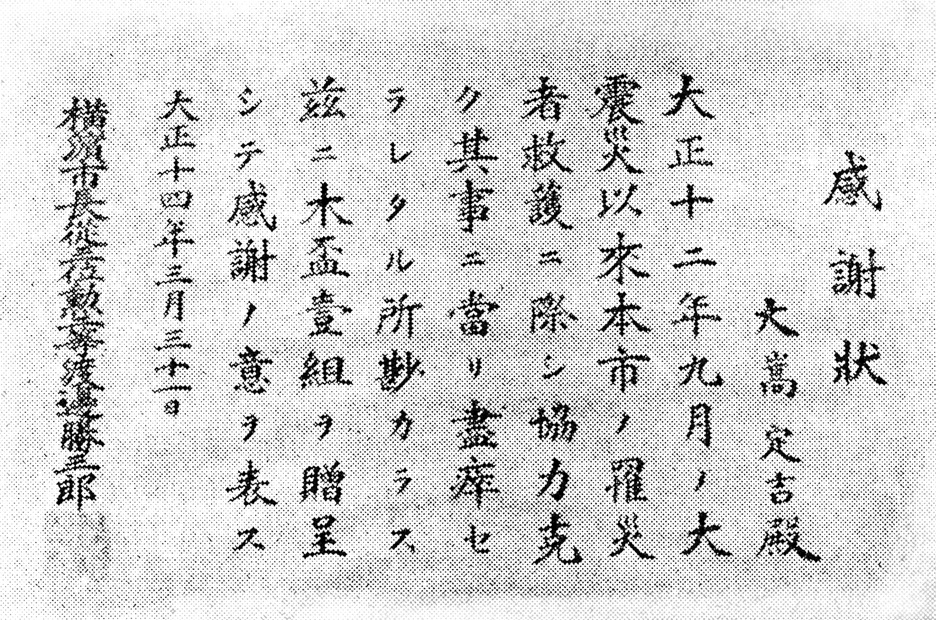 感謝狀
大嵩定吉殿
大正十二年九月ノ大
震災以來本市ノ罹災
者救護ニ際シ協力克
ク其事ニ當リ盡瘁セ
ラレタル所尠カラス
茲ニ木盃壹組ヲ贈呈
シテ感謝ノ意ヲ表ス
大正十四年三月三十一日
橫濱市長從位勳等渡邊勝三郎